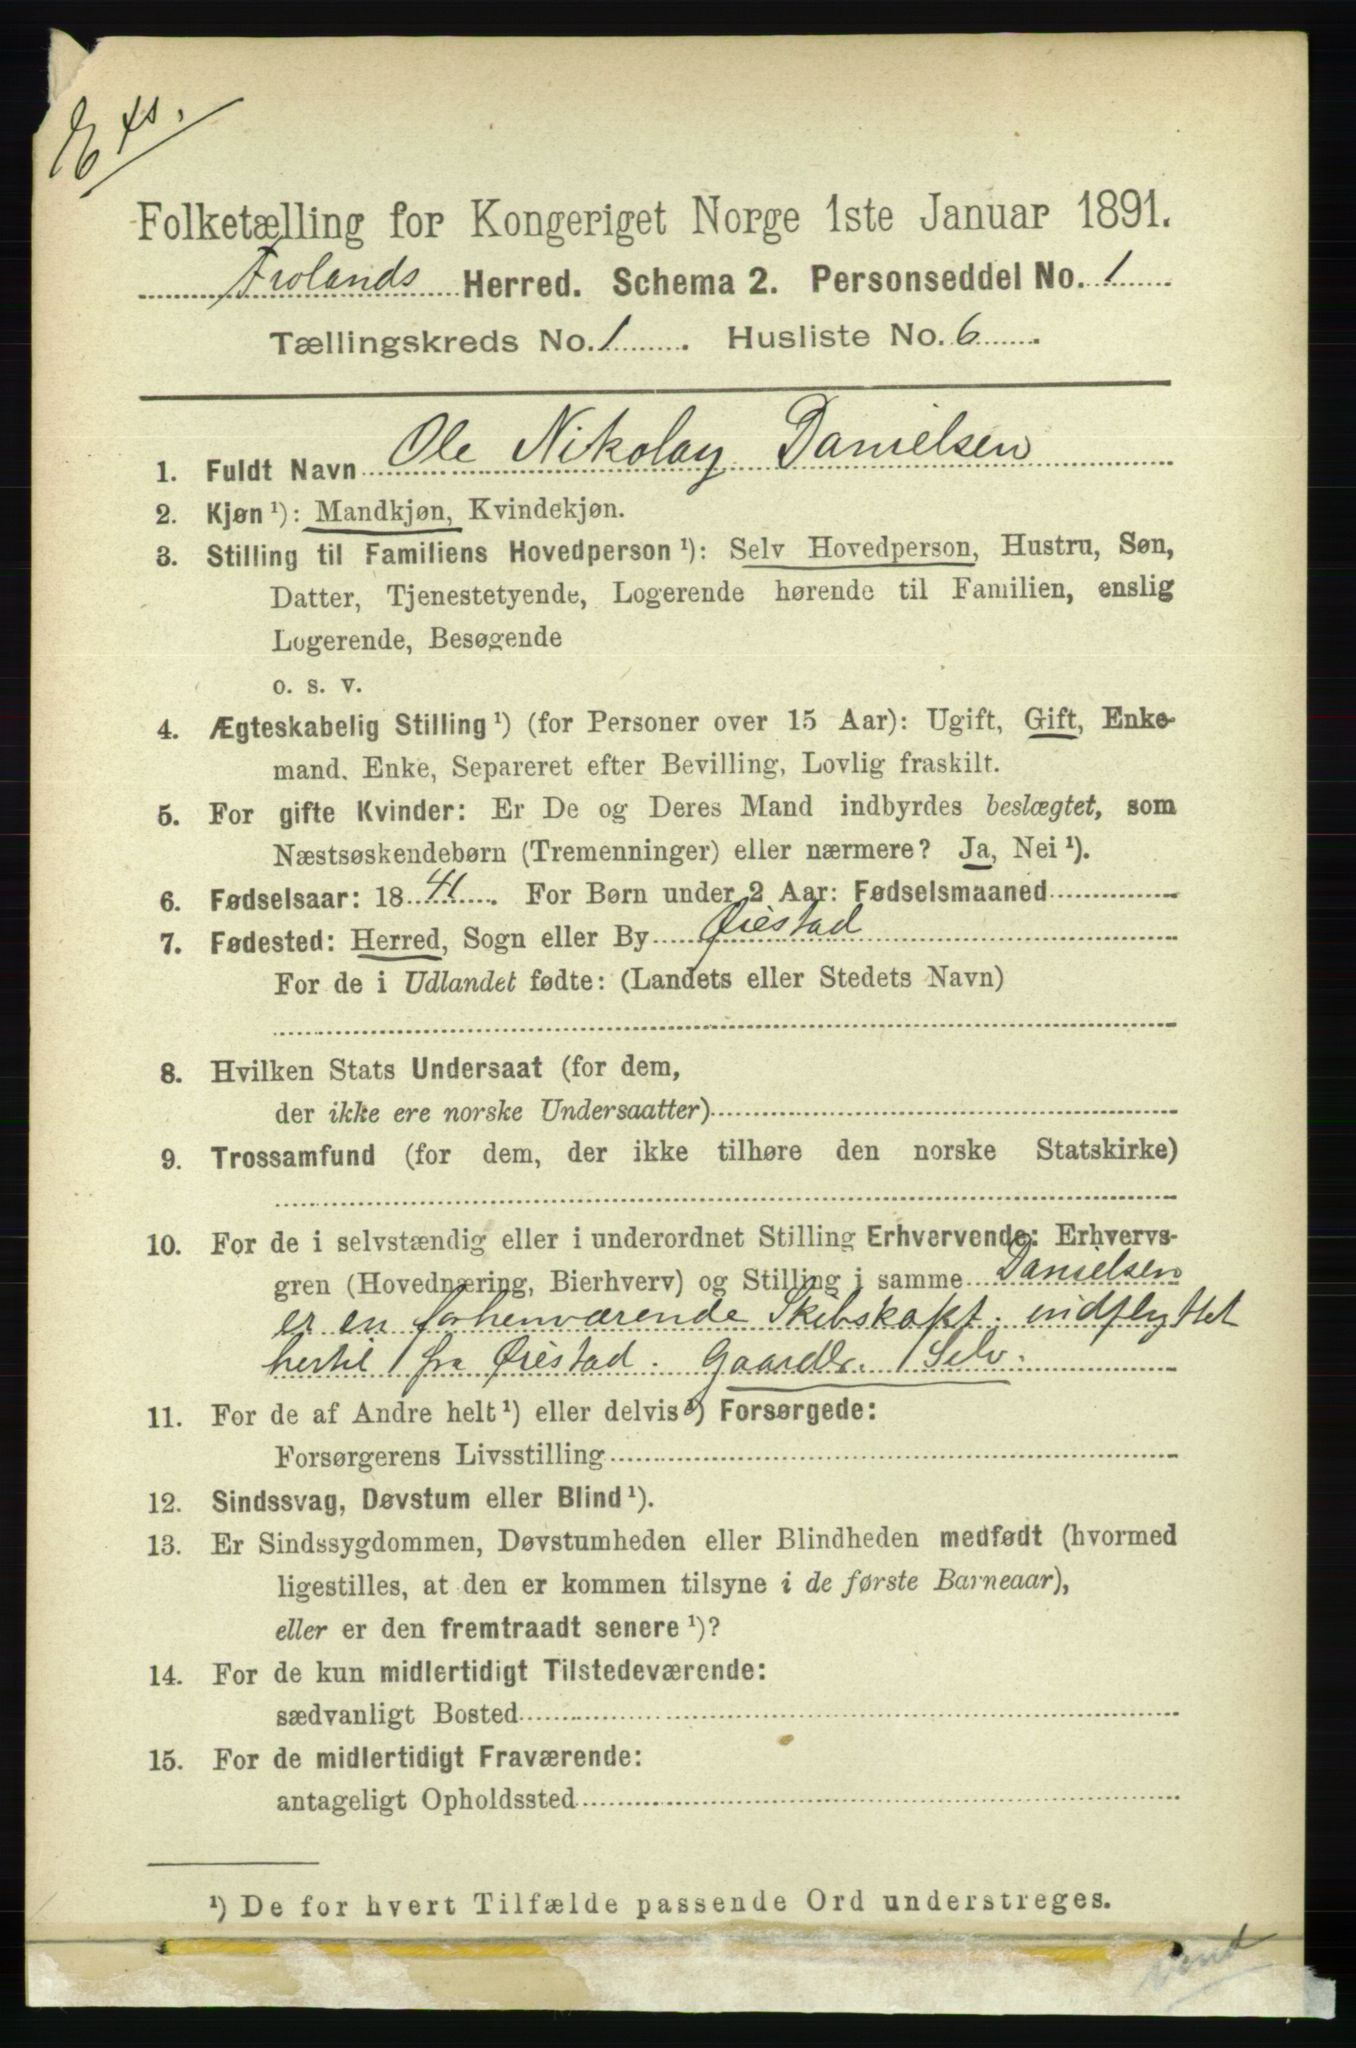 Exs.
Folketælling for Kongeriget Norge 1ste Januar 1891.
Frolands Herred. Schema 2. Personseddel No. 1
Tællingskreds No. 1. Husliste No. 6.
1. Fuldt Navn Ole Nikolay Danielsen
2. Kjøn ¹): Mandkjøn, Kvindekjøn.
3. Stilling til Familiens Hovedperson ¹): Selv Hovedperson, Hustru, Søn,
Datter, Tjenestetyende, Logerende hørende til Familien, enslig
Logerende, Besøgende
o. s. v.
4. Ægteskabelig Stilling ¹) (for Personer over 15 Aar): Ugift, Gift, Enke-
mand, Enke, Separeret efter Bevilling, Lovlig fraskilt.
5. For gifte Kvinder: Er De og Deres Mand indbyrdes beslægtet, som
Næstsøskendebørn (Tremenninger) eller nærmere? Ja, Nei ¹).
6. Fødselsaar: 1841. For Børn under 2 Aar: Fødselsmaaned
7. Fødested: Herred, Sogn eller By Øiestad
For de i Udlandet fødte: (Landets eller Stedets Navn)
8. Hvilken Stats Undersaat (for dem,
der ikke ere norske Undersaatter)
9. Trossamfund (for dem, der ikke tilhøre den norske Statskirke)
10. For de i selvstændig eller i underordnet Stilling Erhvervende: Erhvervs-
gren (Hovednæring, Bierhverv) og Stilling i samme Danielsen
er en forhenværende Skibskapt. indflyttet
hertil fra Øiestad. Gaardbr. Selv.
11. For de af Andre helt ¹) eller delvis ¹) Forsørgede:
Forsørgerens Livsstilling
12. Sindssvag, Døvstum eller Blind ¹).
13. Er Sindssygdommen, Døvstumheden eller Blindheden medfødt (hvormed
ligestilles, at den er kommen tilsyne i de første Barneaar),
eller er den fremtraadt senere ¹)?
14. For de kun midlertidigt Tilstedeværende:
sædvanligt Bosted
15. For de midlertidigt Fraværende:
antageligt Opholdssted
¹) De for hvert Tilfælde passende Ord understreges.
Vend